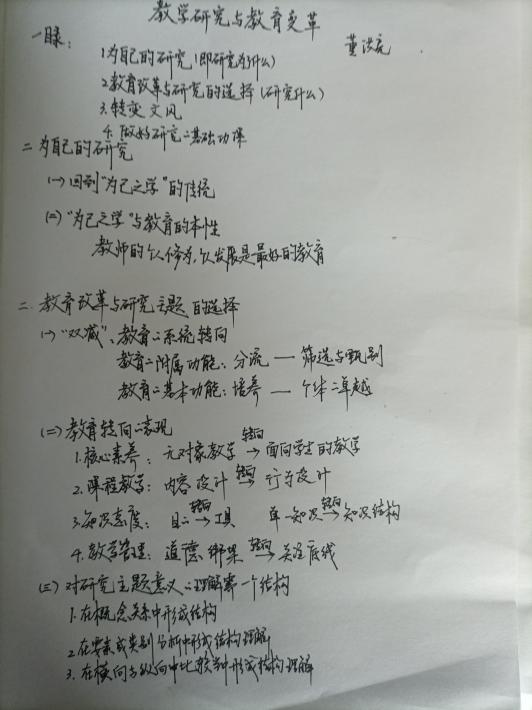 教学研究与教育变革
一目录：
董洪亮
1.为自己的研究（即研究为什么）
2.教育改革与研究的选择（研究什么）
3.转变文风
4.做好研究二基础功课
二为自己的研究
（一）回到“为己之学”的传统
（二）“为己之学”与教育的本性
教师的个人修为，个人发展是最好的教育
二.教育改革与研究主题的选择
（一）“双减”、教育二系统转向
教育二附属功能：分流—筛选与甄别
教育二基本功能：培养—个体二卓越
（二）教育转向二表现
1.核心素养：无对象教学 转向→ 面向学生的教学
2.课程教学：内容设计 转向→ 行为设计
3.知识态度：目二 转向→ 工具 单一知识 转向→ 知识结构
4.教学管理：道德绑架 转向→ 关注底线
（三）对研究主题意义二理解需一个结构
1.在概念关系中形成结构
2.在要素或类别分析中形成结构理解
3.在横向与纵向中比较当中形成结构理解